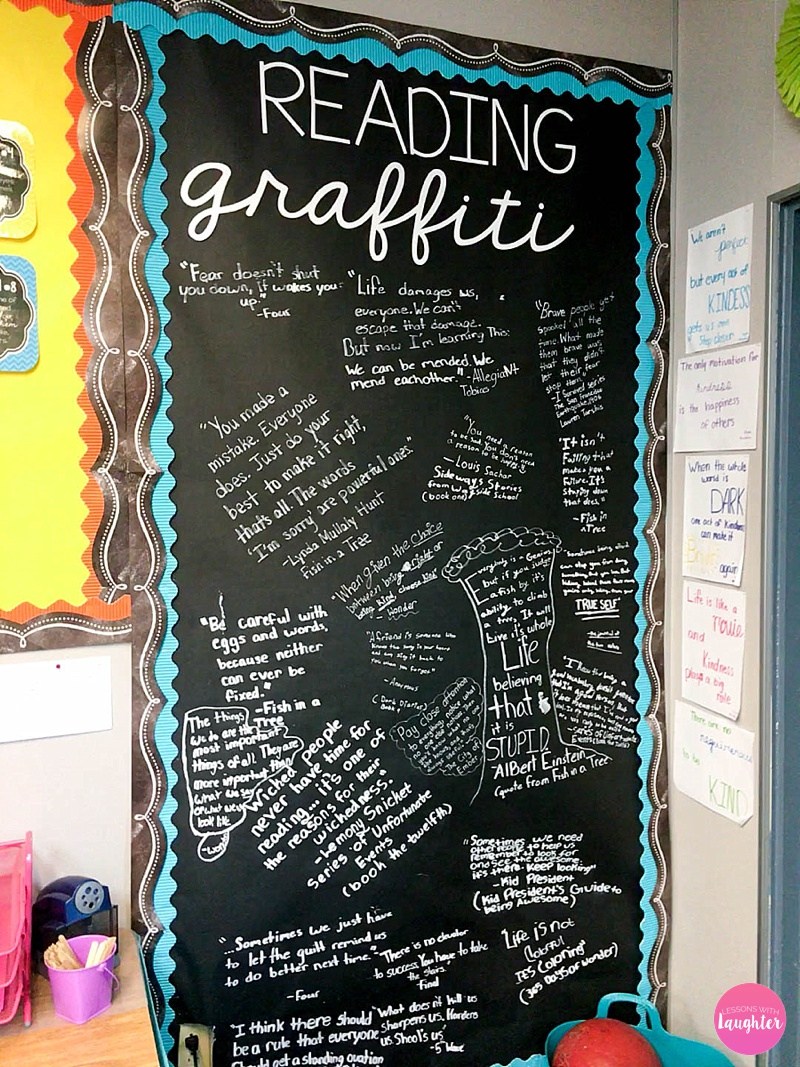 READING
graffiti
"Fear doesn't shut
you down, it wakes you
up."
-Four
"Life damages us,
everyone. We can't
escape that damage.
But now I'm learning This:
We can be mended. We
mend eachother." - AllegiaNt
Tobias
"Brave people get
spooked all the
time. What made
them brave was
that they didn't
let their fear
stop them."
-I Survived series
The San Francisco
Earthquake, 1906
Lauren Tarshis
"You made a
mistake. Everyone
does. Just do your
best to make it right,
that's all. The words
'I'm sorry' are powerful ones."
-Lynda Mullaly Hunt
Fish in a Tree
"You need a reason
to be sad. You don't need
a reason to be happy."
-Louis Sachar
Sideways Stories
from Wayside School
(book one)
"It isn't
Failing that
makes you a
Failure. It's
Staying down
that does."
-Fish in
a Tree
"When given the choice
between being right or
being kind choose kind"
Wonder
Everybody is a Genius,
but if you judge
a fish by it's
ability to climb
a tree, It will
Live it's whole
Life
believing
that
it is
STUPID.
-Albert Einstein
(quote from Fish in a Tree)
"Sometimes being
TRUE SELF"
"Be careful with
eggs and words,
because neither
can ever be
fixed."
-Fish in a
Tree
"A friend is someone who
knows the song in your heart
and can sing it back to
you when you forget"
-Anonymous
The things
we do are the
most important
things of all. They are
more important than
what we say
or what we
look like
-Wonder
Wicked people
never have time for
reading... it's one of
the reasons for their
wickedness."
-Lemony Snicket
series of Unfortunate
Events
(book the twelfth)
Pay close attention
City of
Ember
-Series of Unfortunate
Events
"Sometimes we need
other people to help us
remember to look for
and see the awesome.
it's there. Keep looking"
-Kid President
(Kid President's Guide to
being Awesome)
"...Sometimes we just have
to let the guilt remind us
to do better next time."
-Four
"There is no elevator
to success You have to take
the stairs."
"Life is not
Colorful
IT'S Coloring"
(365 Days of Wonder)
"I think there should
be a rule that everyone
Should get a standing ovation
"What does nt kill us
sharpens us. Hardens
us Shool's us"
-5 Wave
We aren't
perfect
but every act of
KINDESS
gets us one
step closer
The only motivation for
kindness
is the happiness
of others
When the whole
world is
DARK
one act of kindness
can make it
Bright
again
Life is like a
movie
and
Kindness
plays a big
role
There are no
requirements
to be
KIND
LESSONS WITH
Laughter